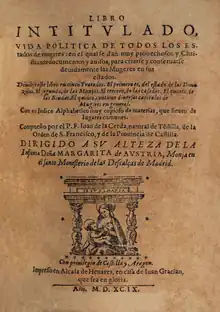 LIBRO
INTITVLADO,
VIDA POLITICA DE TODOS LOS ES-
tados de mugeres: en el qual se dan muy prouechosos, y Chri-
stianos documentos y auisos, para criarse y conseruarse
deuidamente las Mugeres en sus
estados.
Diuidese este libro en cinco Tratados. El primero es, del estado de las Donze-
llas. El segundo, de las Monjas. El tercero, de las casadas. El quarto, de
las Biudas. El quinto, contiene diuersos capitulos de
Mugeres en general.
Con vn Indice Alphabetico muy copioso de materias, que siruen de
lugares comunes.
Compuesto por el P. F. Iuan de la Cerda, natural de Tobilla, de la
Orden de S. Francisco, y de la Prouincia de Castilla.
DIRIGIDO A SV ALTEZA DE LA
Infanta Doña MARGARITA de AVSTRIA, Monja en
el santo Monesterio de las Descalças de Madrid.
Con priuilegio de Castilla y Aragon.
Impresso en Alcala de Henares, en casa de Iuan Gracian,
que sea en gloria.
Año, M. D. XC. IX.